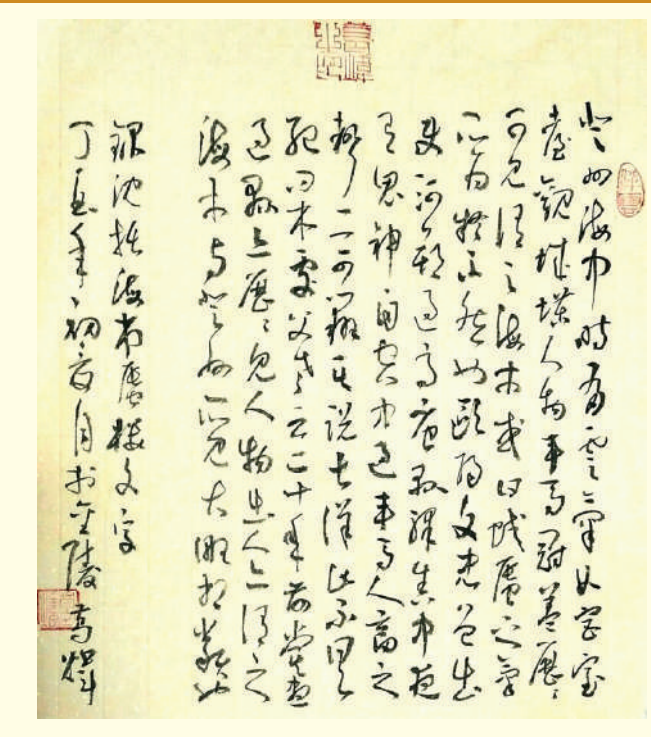 登州海中時有雲氣如宮室
臺觀城堞人物車馬冠蓋歷〻
可見謂之海市或曰蛟蜃之氣
所为疑不然也歐陽文忠曾出
使河朔過高唐縣驛舍中夜
有鬼神自空中過車馬人畜之
聲一一可辨其說甚詳此不具
紀問本處父老云二十年前嘗晝
過縣亦歷〻見人物土人亦謂之
海市與登州所見大略相類也
錄沈括海市蜃樓文字
丁亥年初夏月於金陵高